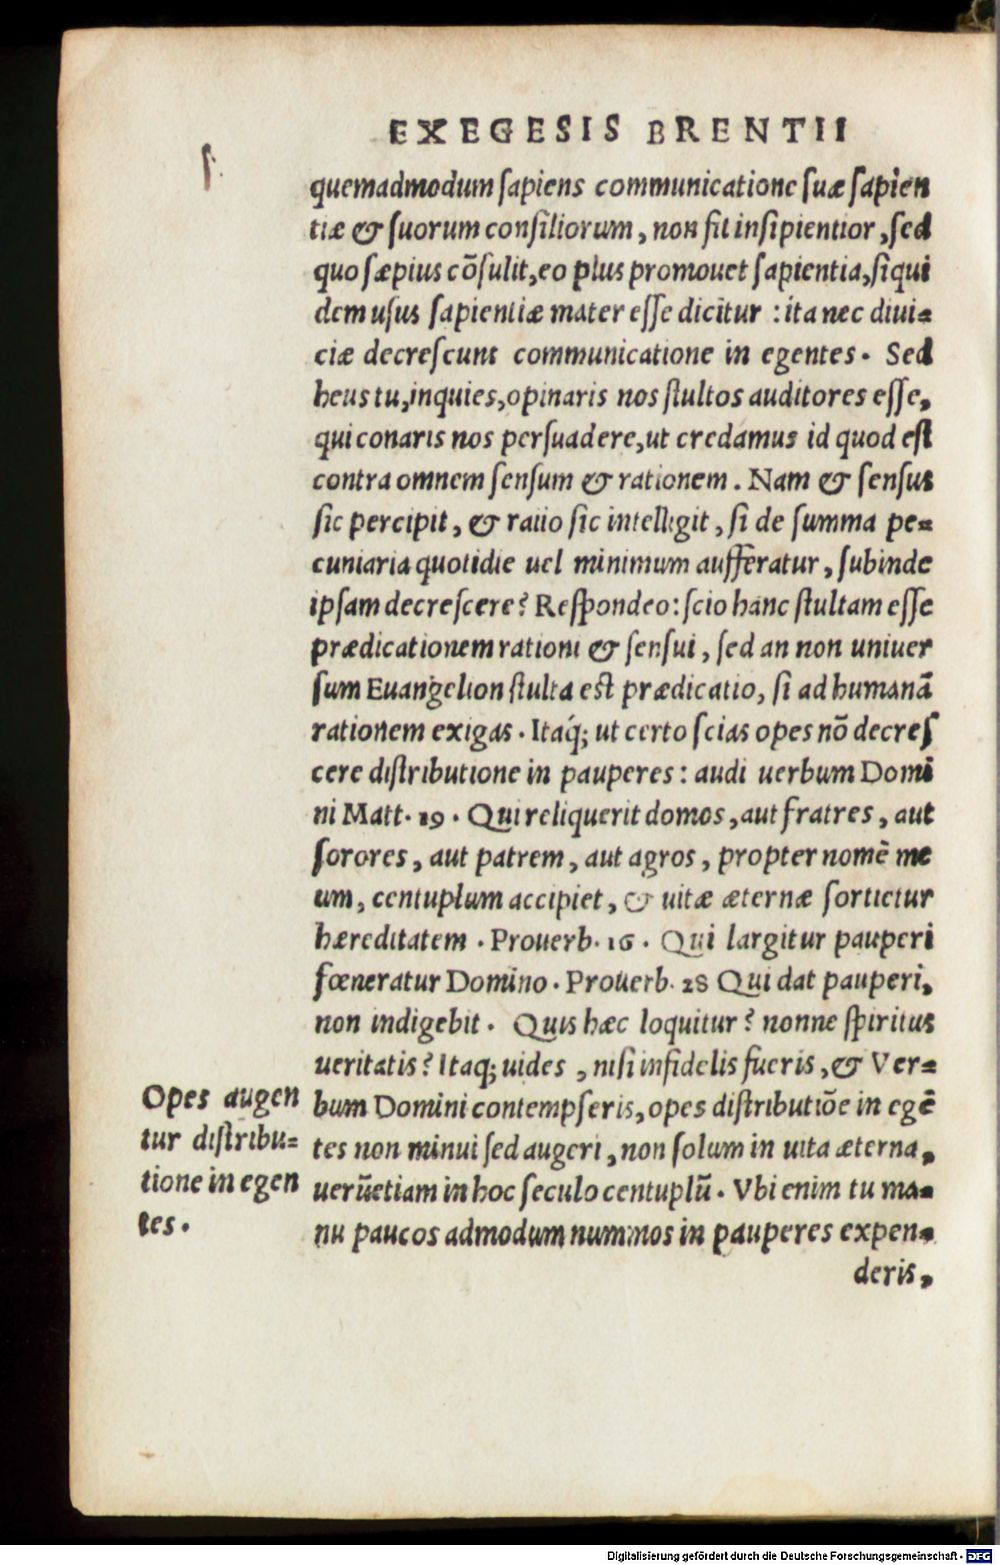 EXEGESIS BRENTII
quemadmodum ſapiens communicatione ſuæ ſapien
tiæ & ſuorum conſiliorum, non fit inſipientior, ſed
quo ſæpius cõſulit, eo plus promouet ſapientia, ſiqui
dem uſus ſapientiæ mater eſſe dicitur : ita nec diui=
ciæ decreſcunt communicatione in egentes. Sed
heus tu, inquies, opinaris nos ſtultos auditores eſſe,
qui conaris nos perſuadere, ut credamus id quod eſt
contra omnem ſenſum & rationem. Nam & ſenſus
ſic percipit, & ratio ſic intelligit, ſi de ſumma pe=
cuniaria quotidie uel minimum aufferatur, ſubinde
ipſam decreſcere? Reſpondeo: ſcio hanc ſtultam eſſe
prædicationem rationi & ſenſui, ſed an non uniuer
ſum Euangelion ſtulta eſt prædicatio, ſi ad humanã
rationem exigas. Itaq́; ut certo ſcias opes nõ decreſ
cere diſtributione in pauperes: audi uerbum Domi
ni Matt. 19. Qui reliquerit domos, aut fratres, aut
ſorores, aut patrem, aut agros, propter nomẽ me
um, centuplum accipiet, & uitæ æternæ ſortietur
hæreditatem. Prouerb. 16. Qui largitur pauperi
fœneratur Domino. Prouerb. 28 Qui dat pauperi,
non indigebit. Quis hæc loquitur? nonne ſpiritus
ueritatis? Itaq; uides, niſi infidelis fueris, & Ver=
bum Domini contempſeris, opes diſtributiõe in egẽ
tes non minui ſed augeri, non ſolum in uita æterna,
uerũetiam in hoc ſeculo centuplũ. Vbi enim tu ma=
nu paucos admodum nummos in pauperes expen=
deris,
Opes augen
tur diſtribu=
tione in egen
tes.
Digitalisierung gefördert durch die Deutsche Forschungsgemeinschaft - DFG